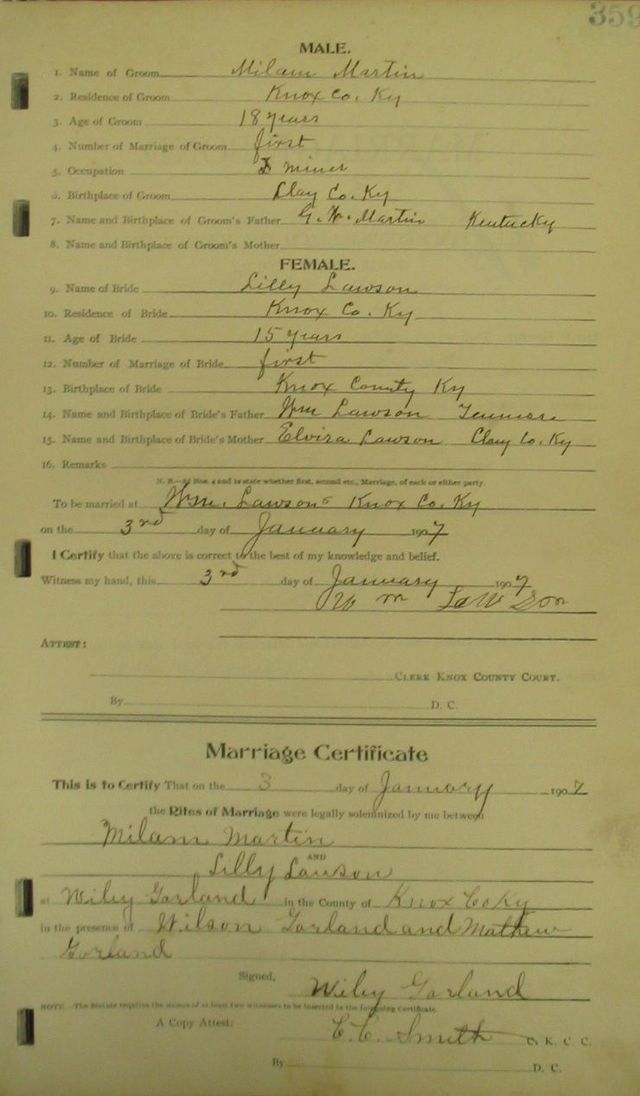 359
MALE.
1. Name of Groom Milam Martin
2. Residence of Groom Knox Co. Ky
3. Age of Groom 18 years
4. Number of Marriage of Groom first
5. Occupation miner
6. Birthplace of Groom Clay Co. Ky
7. Name and Birthplace of Groom's Father G. W. Martin Kentucky
8. Name and Birthplace of Groom's Mother
FEMALE.
9. Name of Bride Lilly Lawson
10. Residence of Bride Knox Co. Ky
11. Age of Bride 15 years
12. Number of Marriage of Bride first
13. Birthplace of Bride Knox County Ky
14. Name and Birthplace of Bride's Father Wm Lawson
15. Name and Birthplace of Bride's Mother Elvira Lawson Clay Co. Ky
16. Remarks
N. B.—At Nos. 4 and 12 state whether first, second etc., Marriage, of each or either party.
To be married at Wm. Lawsons Knox Co. Ky
on the 3rd day of January 1907
I Certify that the above is correct to the best of my knowledge and belief.
Witness my hand, this 3rd day of January 1907
Wm Lawson
ATTEST:
CLERK KNOX COUNTY COURT.
By D. C.
Marriage Certificate
This is to Certify That on the 3 day of January 1907
the Rites of Marriage were legally solemnized by me between
Milam Martin
AND
Lilly Lawson
at Wiley Garland in the County of Knox Co Ky
in the presence of Wilson Garland and Mathew
Garland
Signed, Wiley Garland
NOTE.—The Statute requires the names of at least two witnesses to be inserted in the foregoing Certificate.
A Copy Attest: C. C. Smith C. K. C. C.
By D. C.